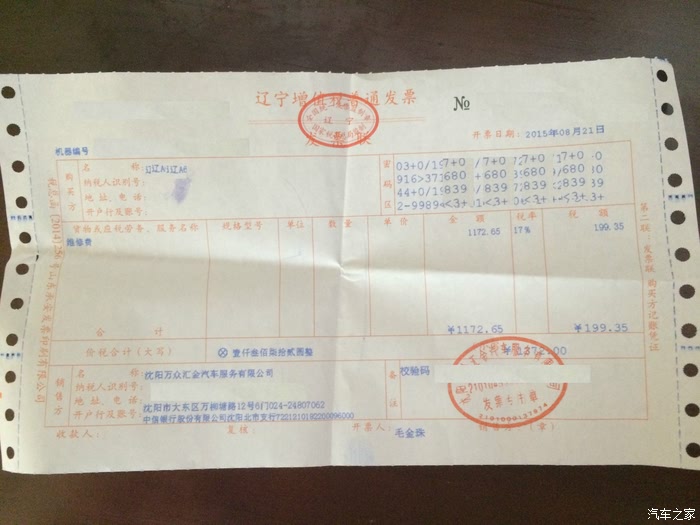 辽宁增值税普通发票
发票联
No
开票日期：2015年08月21日
机器编号
购买方
名 称：
纳税人识别号：
地 址、电 话：
开户行及账号：
密码区
货物或应税劳务、服务名称 规格型号 单位 数量 单价 金额 税率 税额
维修费 1172.65 17% 199.35
合 计 ￥1172.65 ￥199.35
价税合计（大写） 壹仟叁佰柒拾贰圆整 ￥1372.00
销售方
名 称：沈阳万众汇金汽车服务有限公司
纳税人识别号：
地 址、电 话：沈阳市大东区万柳塘路12号6门024-24807062
开户行及账号：中信银行股份有限公司沈阳北市支行7221210192200096000
备注
校验码
发票专用章
收款人： 复核： 开票人：毛金珠
第二联：发票联 购买方记账凭证
汽车之家